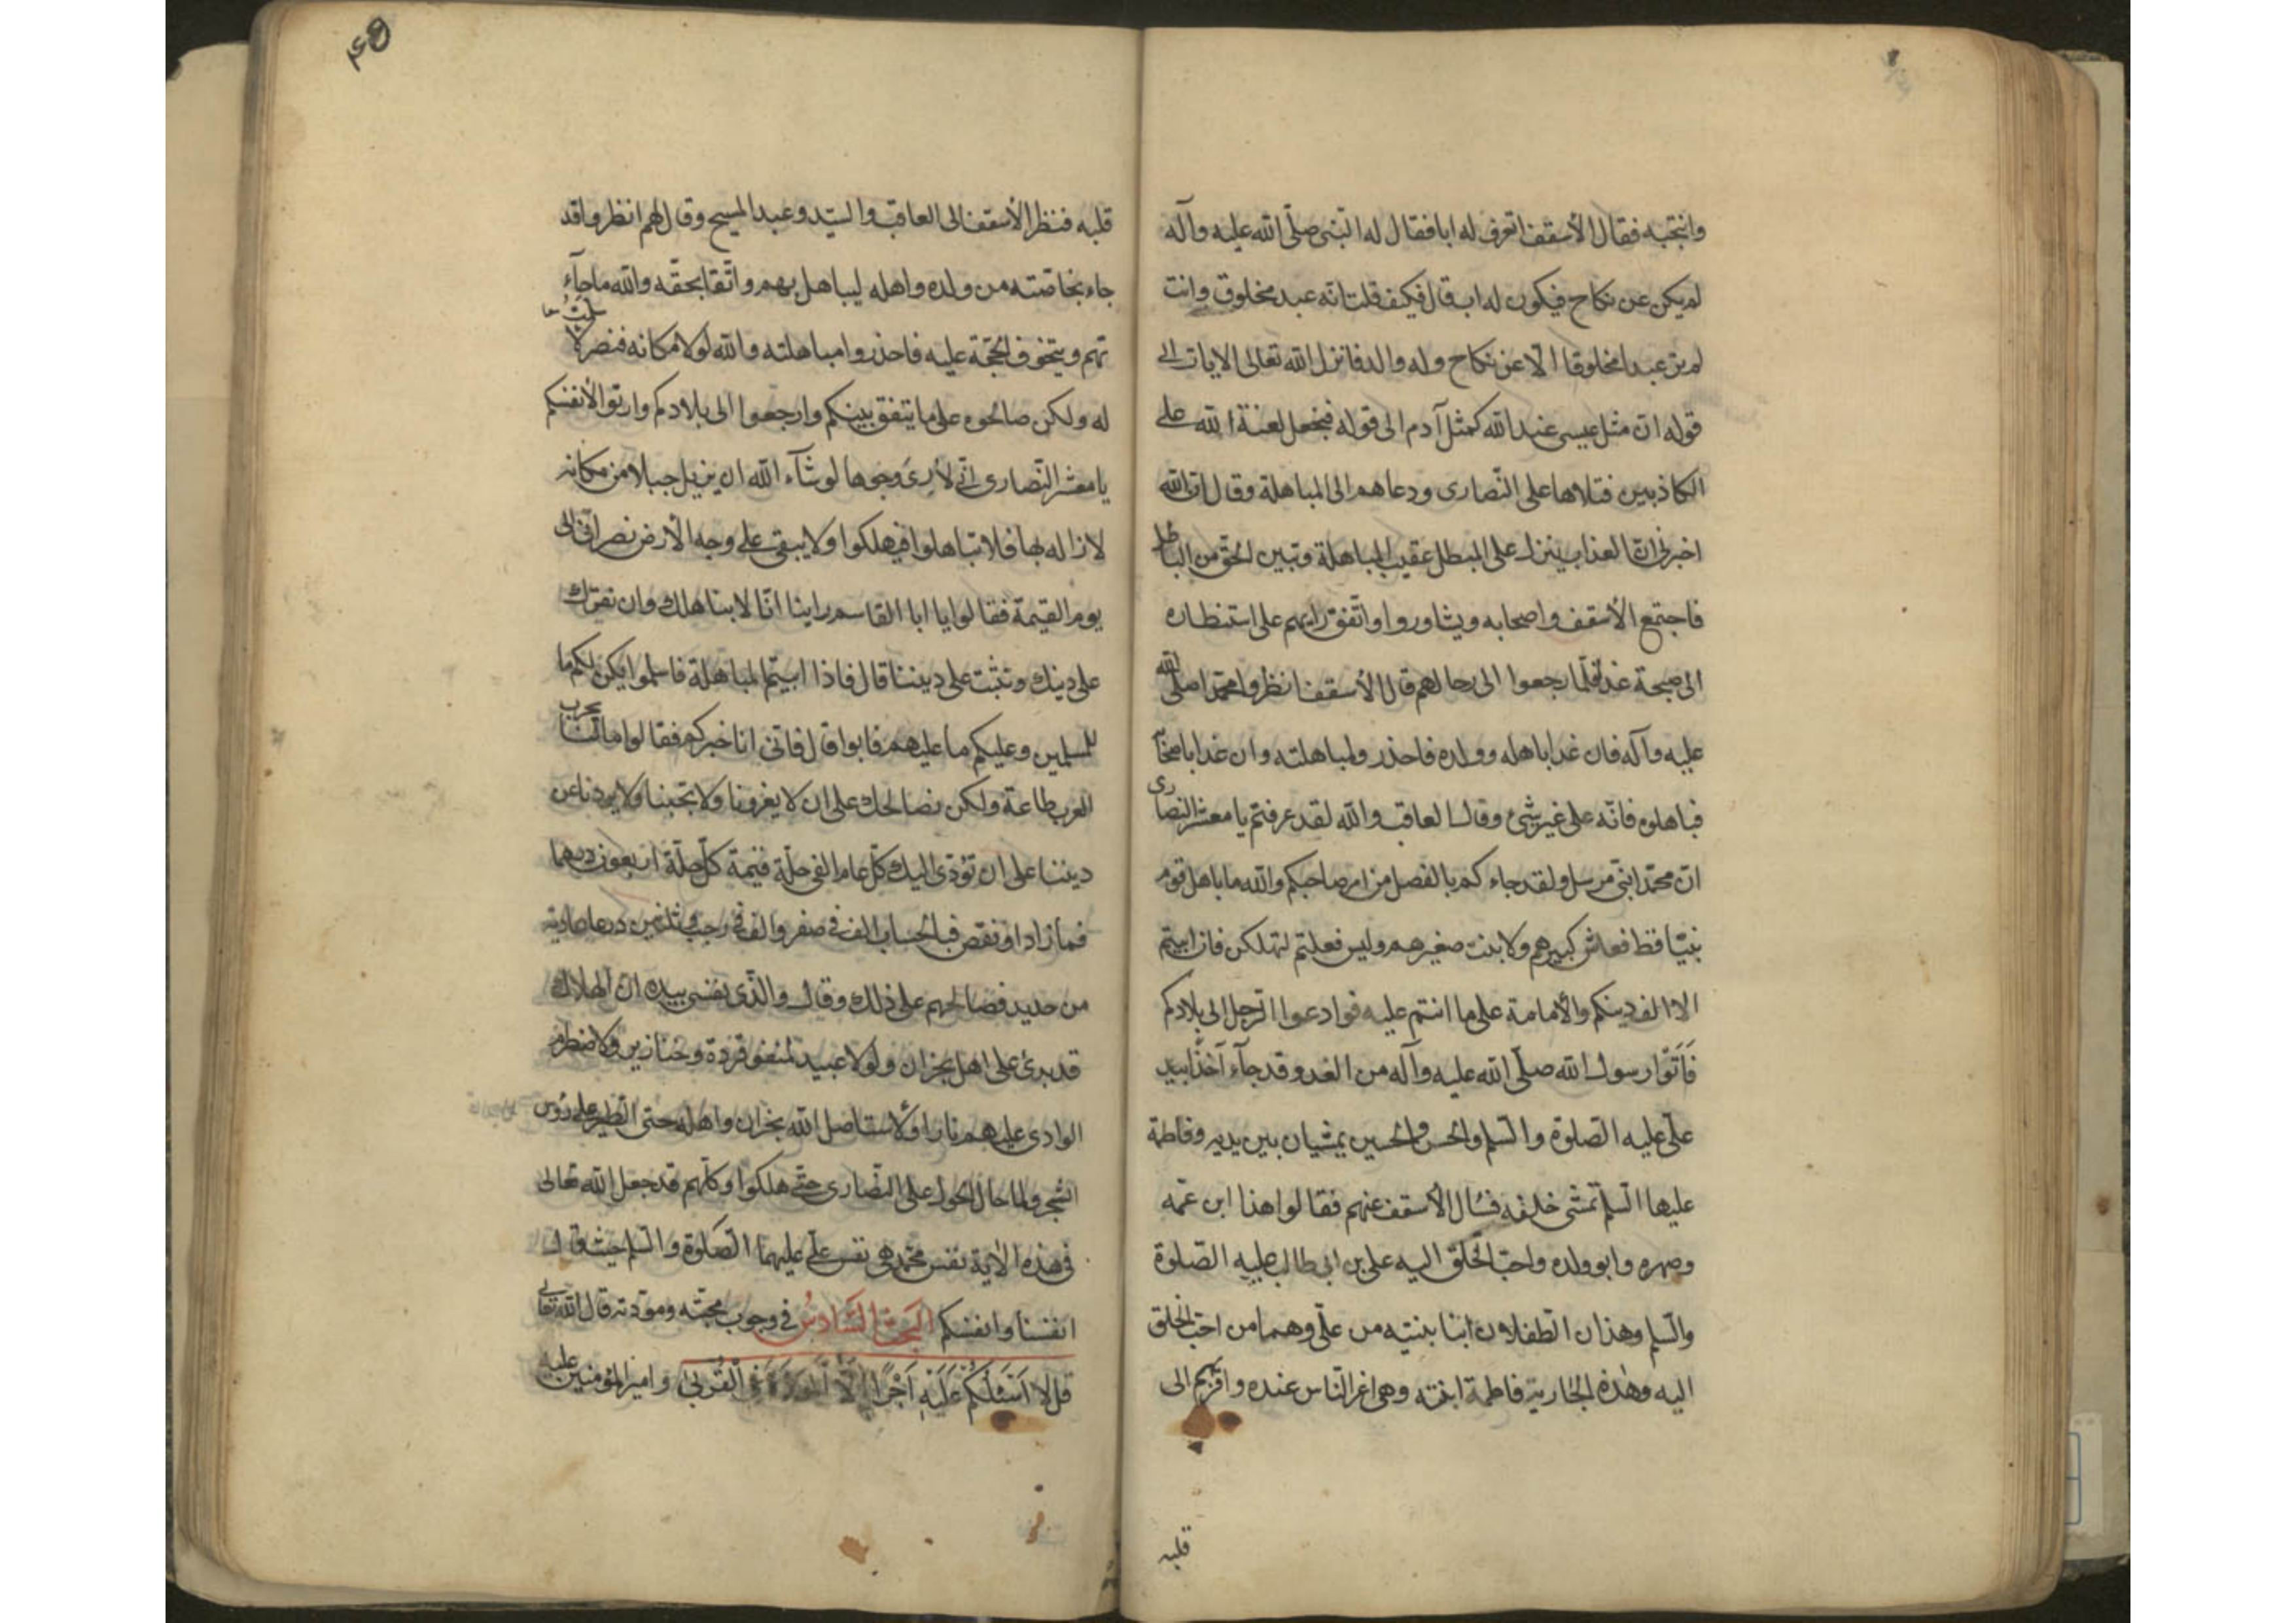 وانتجبه فقال الأسقف اتعرف له ابا فقال له النبى صلّى الله عليه وآله
لم يكن عن نكاح فيكون له اب قال فكيف قلت انه عبد مخلوق وانت
لم تر عبدا مخلوقا الا عن نكاح وله والد فانزل الله تعالى الايات الى
قوله ان مثل عيسى عند الله كمثل آدم الى قوله فنجعل لعنة الله على
الكاذبين فتلاها على النّصارى ودعاهم الى المباهلة وقال ان الله
اخبرنى ان العذاب ينزل على المبطل عقيب المباهلة وتبين الحق من الباطل
فاجتمع الأسقف واصحابه ويشاوروا واتّفق رايهم على استنظاره
الى صبيحة غد فلمّا رجعوا الى رحالهم قال الأسقف انظروا محمّدا صلّى الله
عليه وآله فان غدا باهله وولده فاحذروا مباهلته وان غدا باصحابه
فباهلوه فانّه على غير شئ وقال العاقب والله لقد عرفتم يا معشر النصارى
انّ محمّدا نبى مرسل ولقد جاءكم بالفصل من امر صاحبكم والله ما باهل قوم
نبيّا قط فعاش كبيرهم ولا نبت صغيرهم وليس فعلتم لتهلكن فان ابيتم
الا الف دينكم والأمامة على ما انتم عليه فوادعوا الرّجل الى بلادكم
فَاَتَوْا رسول الله صلّى الله عليه وآله من الغد وقد جآء آخذا بيد
علىّ عليه الصّلوة والسّلم والحسن والحسين يمشيان بين يديه وفاطمة
عليها السّلم تمشى خلفه فسال الأسقف عنهم فقالوا هذا ابن عمّه
وصهره وابو ولده واحبّ الخلق اليه على بن ابى طالب عليه الصّلوة
والسّلم وهذان الطفلان ابنا بنيته من علىّ وهما من احبّ الخلق
اليه وهذه الجارية فاطمة ابنته وهى اعز النّاس عنده واقربهم الى
قلبه
٤٥
قلبه فنظر الأسقف الى العاقب والسّيد وعبد المسيح وقال لهم انظروا قد
جاء بخاصّته من ولده واهله ليباهل بهم واثقا بحقّه والله ما جآء
بهم ويتخوف الحجّة عليه فاحذروا مباهلته والله لولا مكانه قيصر لاسلمت
له ولكن صالحوه على ما يتفق بينكم وارجعوا الى بلادكم وارتقوا لأنفسكم
يا معشر النّصارى انّى لأرىَ وجوها لو شآء الله ان يزيل جبلا من مكانه
لازاله بها فلا تباهلوا فيهلكوا ولا يبقى على وجه الأرض نصرانى الى
يوم القيمة فقالوا يا ابا القاسم راينا انّا لا بناهلك وان نقرّك
على دينك ونثبت على ديننا قال فاذا ابيتم المباهلة فاسلموا يكن لكم ما
للمسلمين وعليكم ما عليهم فابوا قال فانّى اناخبركم فقالوا مالنا بحرب
العرب طاعة ولكن نصالحك على ان لا يغزونا ولا تخيفنا ولا يردنا عن
ديننا على ان نؤدّى اليك كلّ عام الفى حلّة قيمة كلّ حلّة اربعون درهما
فما زاد او نقص فبالحساب الف فى صفر والف فى رجب وثلثين درعا عادية
من حديد فصالحهم على ذلك وقال والّذى نفسى بيده انّ الهلاك
قد برئ على اهل نجران ولولا عبيد لمسخوا قردة وخنازير ولاضطرم
الوادى عليهم نارا ولأستاصل الله نجران واهله حتى الطير على رؤس
الشجر ولما حال الحول على النّصارى حتّى هلكوا وكلّهم قد جعل الله تعالى
فى هذه الاية نفس محمّد هى نفس علىّ عليهما الصّلوة والسّلم حيث قال
انفسنا وانفسكم البَحث السَّادسُ فى وجوب محبّته ومودّته قال الله تعالى
قل لا اَسْئَلُكُمْ عَلَيْهِ اَجْرًا اِلَّا الْمَوَدَّةَ فِى الْقُرْبىٰ وامير المؤمنين عليه